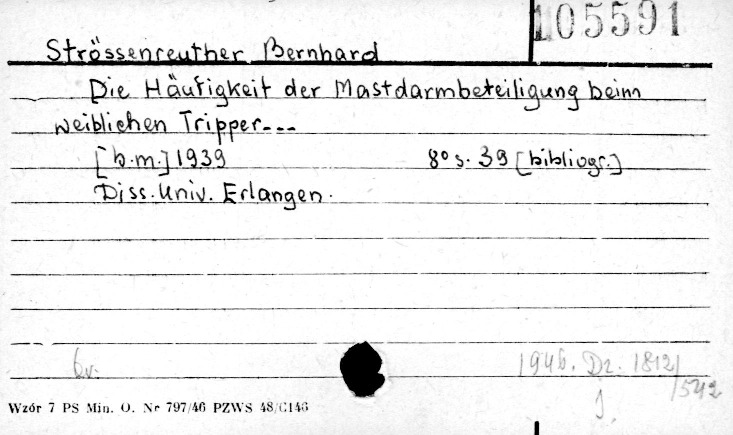 105591
Strössenreuther Bernhard
Die Häufigkeit der Mastdarmbeteiligung beim
weiblichen Tripper---
[b.m.] 1939 8° s. 39 [bibliogr.]
Diss. Univ. Erlangen.
bv.
1946. Dz. 1812/
/542
j.
Wzór 7 PS Min. O. Nr 797/46 PZWS 48/C146